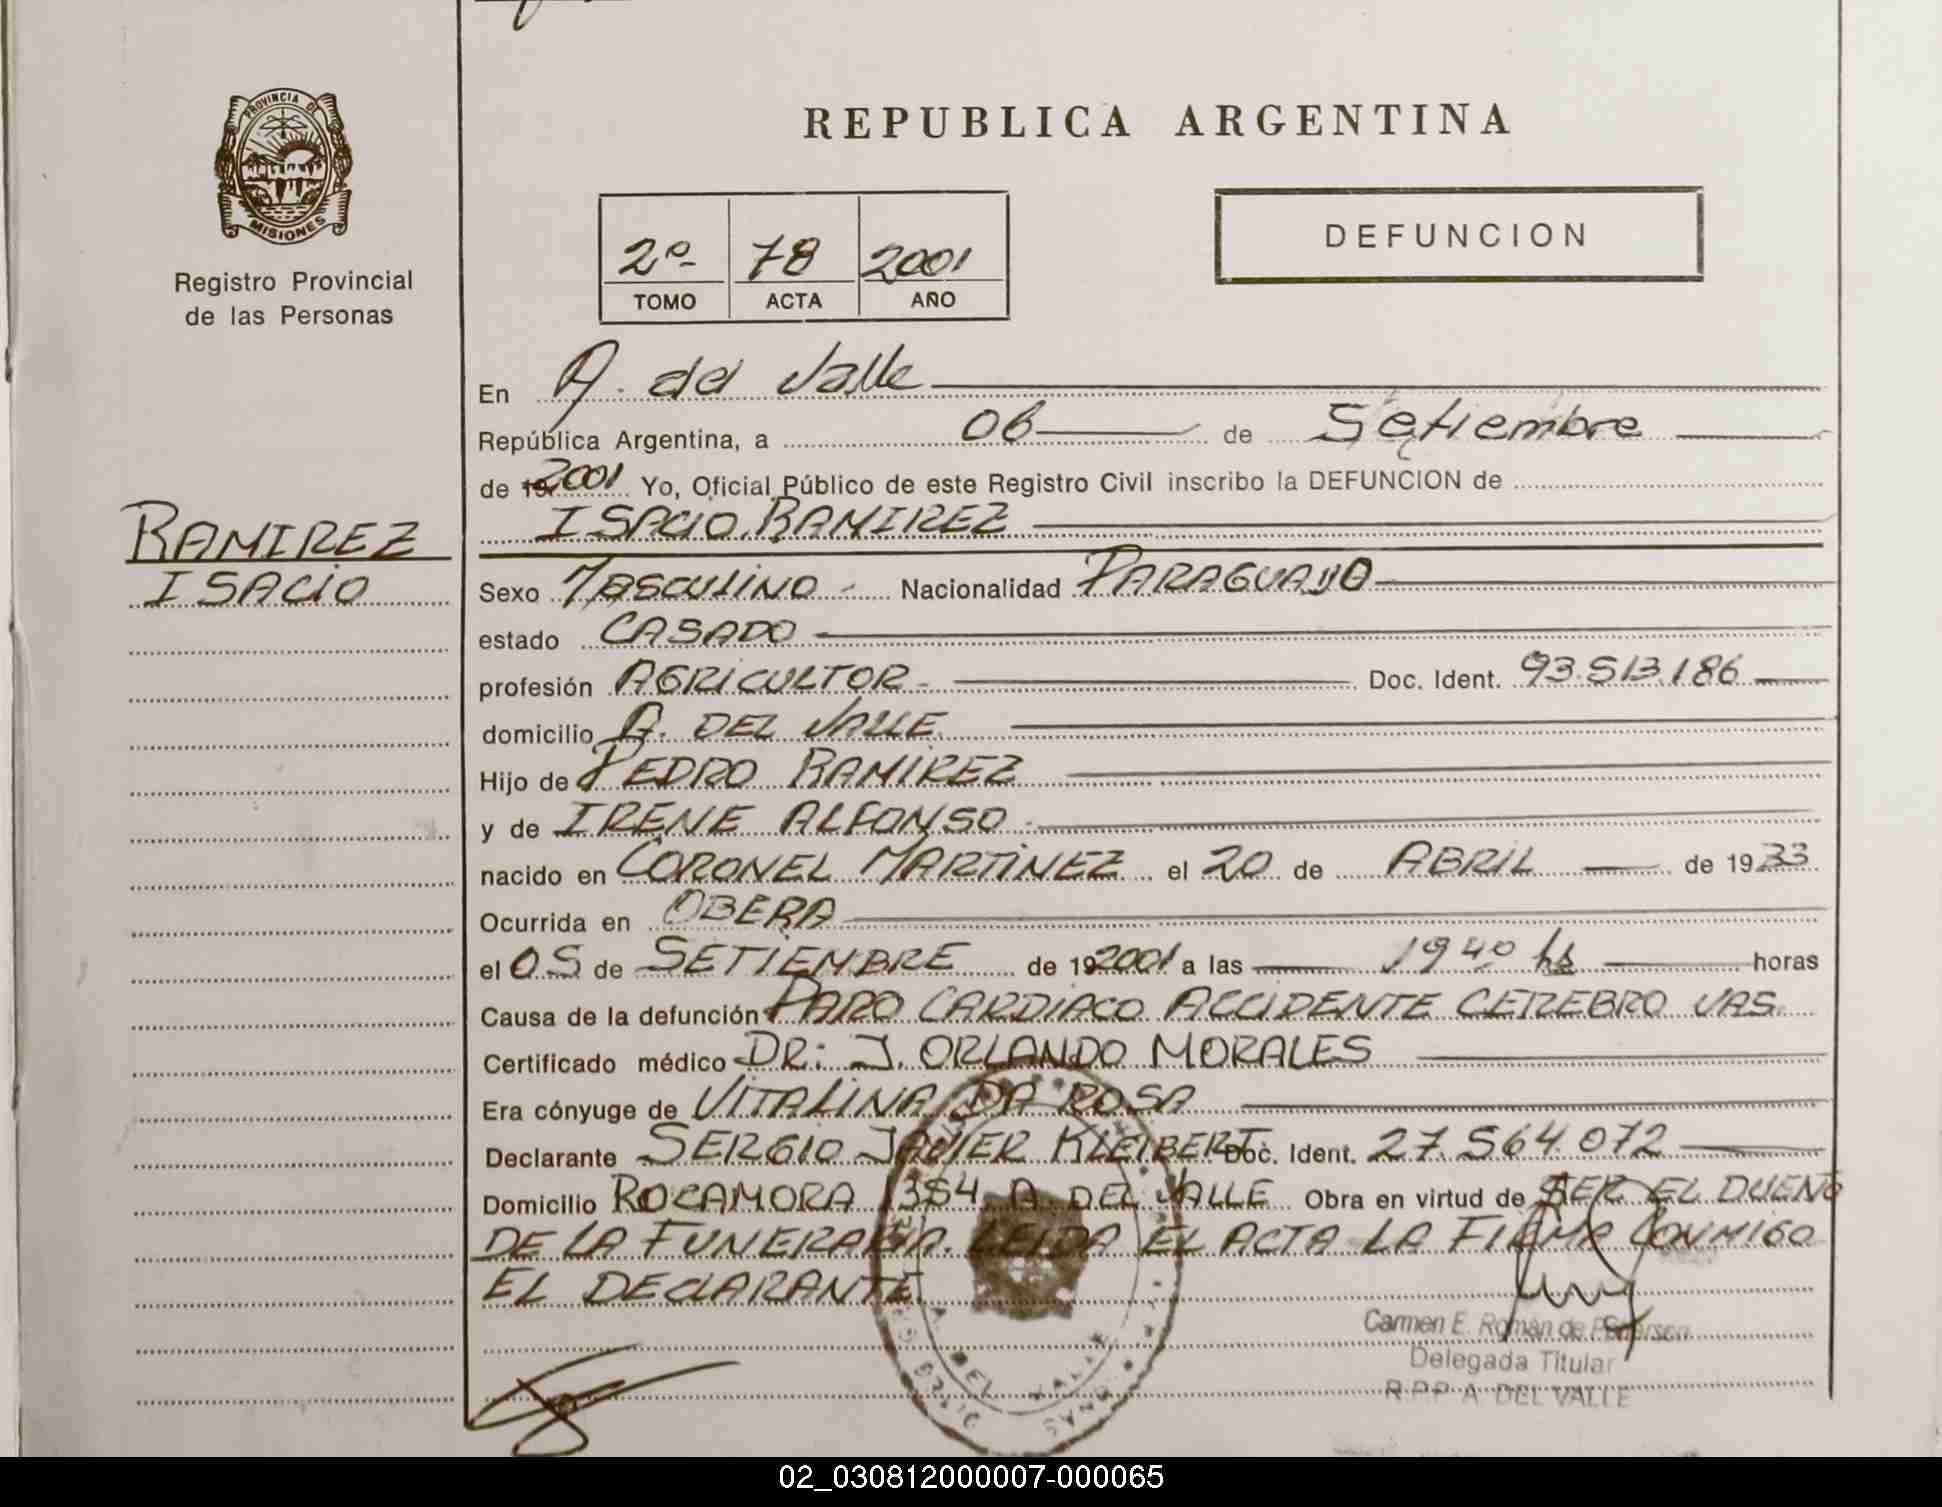 PROVINCIA DE
MISIONES
Registro Provincial
de las Personas
REPUBLICA ARGENTINA
2º 78 2001
TOMO ACTA AÑO
DEFUNCION
En A. del Valle
República Argentina, a 06 de Setiembre
de 19 2001 Yo, Oficial Público de este Registro Civil inscribo la DEFUNCION de
ISACIO RAMIREZ
RAMIREZ
ISACIO
Sexo Masculino Nacionalidad PARAGUAYO
estado CASADO
profesión AGRICULTOR Doc. Ident. 93.513.186
domicilio A. DEL VALLE
Hijo de PEDRO RAMIREZ
y de IRENE ALFONSO
nacido en CORONEL MARTINEZ el 20 de ABRIL de 1933
Ocurrida en OBERA
el 05 de SETIEMBRE de 192001 a las 19 40 hs horas
Causa de la defunción PARO CARDIACO ACCIDENTE CEREBRO VAS.
Certificado médico DR: J. ORLANDO MORALES
Era cónyuge de VITALINA DA ROSA
Declarante SERGIO JAVIER KLEIBERT Doc. Ident. 27.564.072
Domicilio ROCAMORA 354 A. DEL VALLE Obra en virtud de SER EL DUEÑO
DE LA FUNERARIA. LEIDA EL ACTA LA FIRMA CONMIGO
EL DECLARANTE
Carmen E. Román de
Delegada Titular
R.P.P. A. DEL VALLE
A. DEL VALLE
02_030812000007-000065